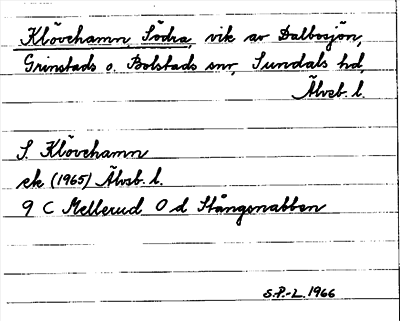 Klövehamn, Södra, vik av Dalbosjön,
Grinstads o. Bolstads snr, Sundals hd,
Älvsb. l.
S. Klövehamn
ek (1965) Älvsb. l.
9 C Mellerud 0 d Stångenabben
S.P.-L. 1966